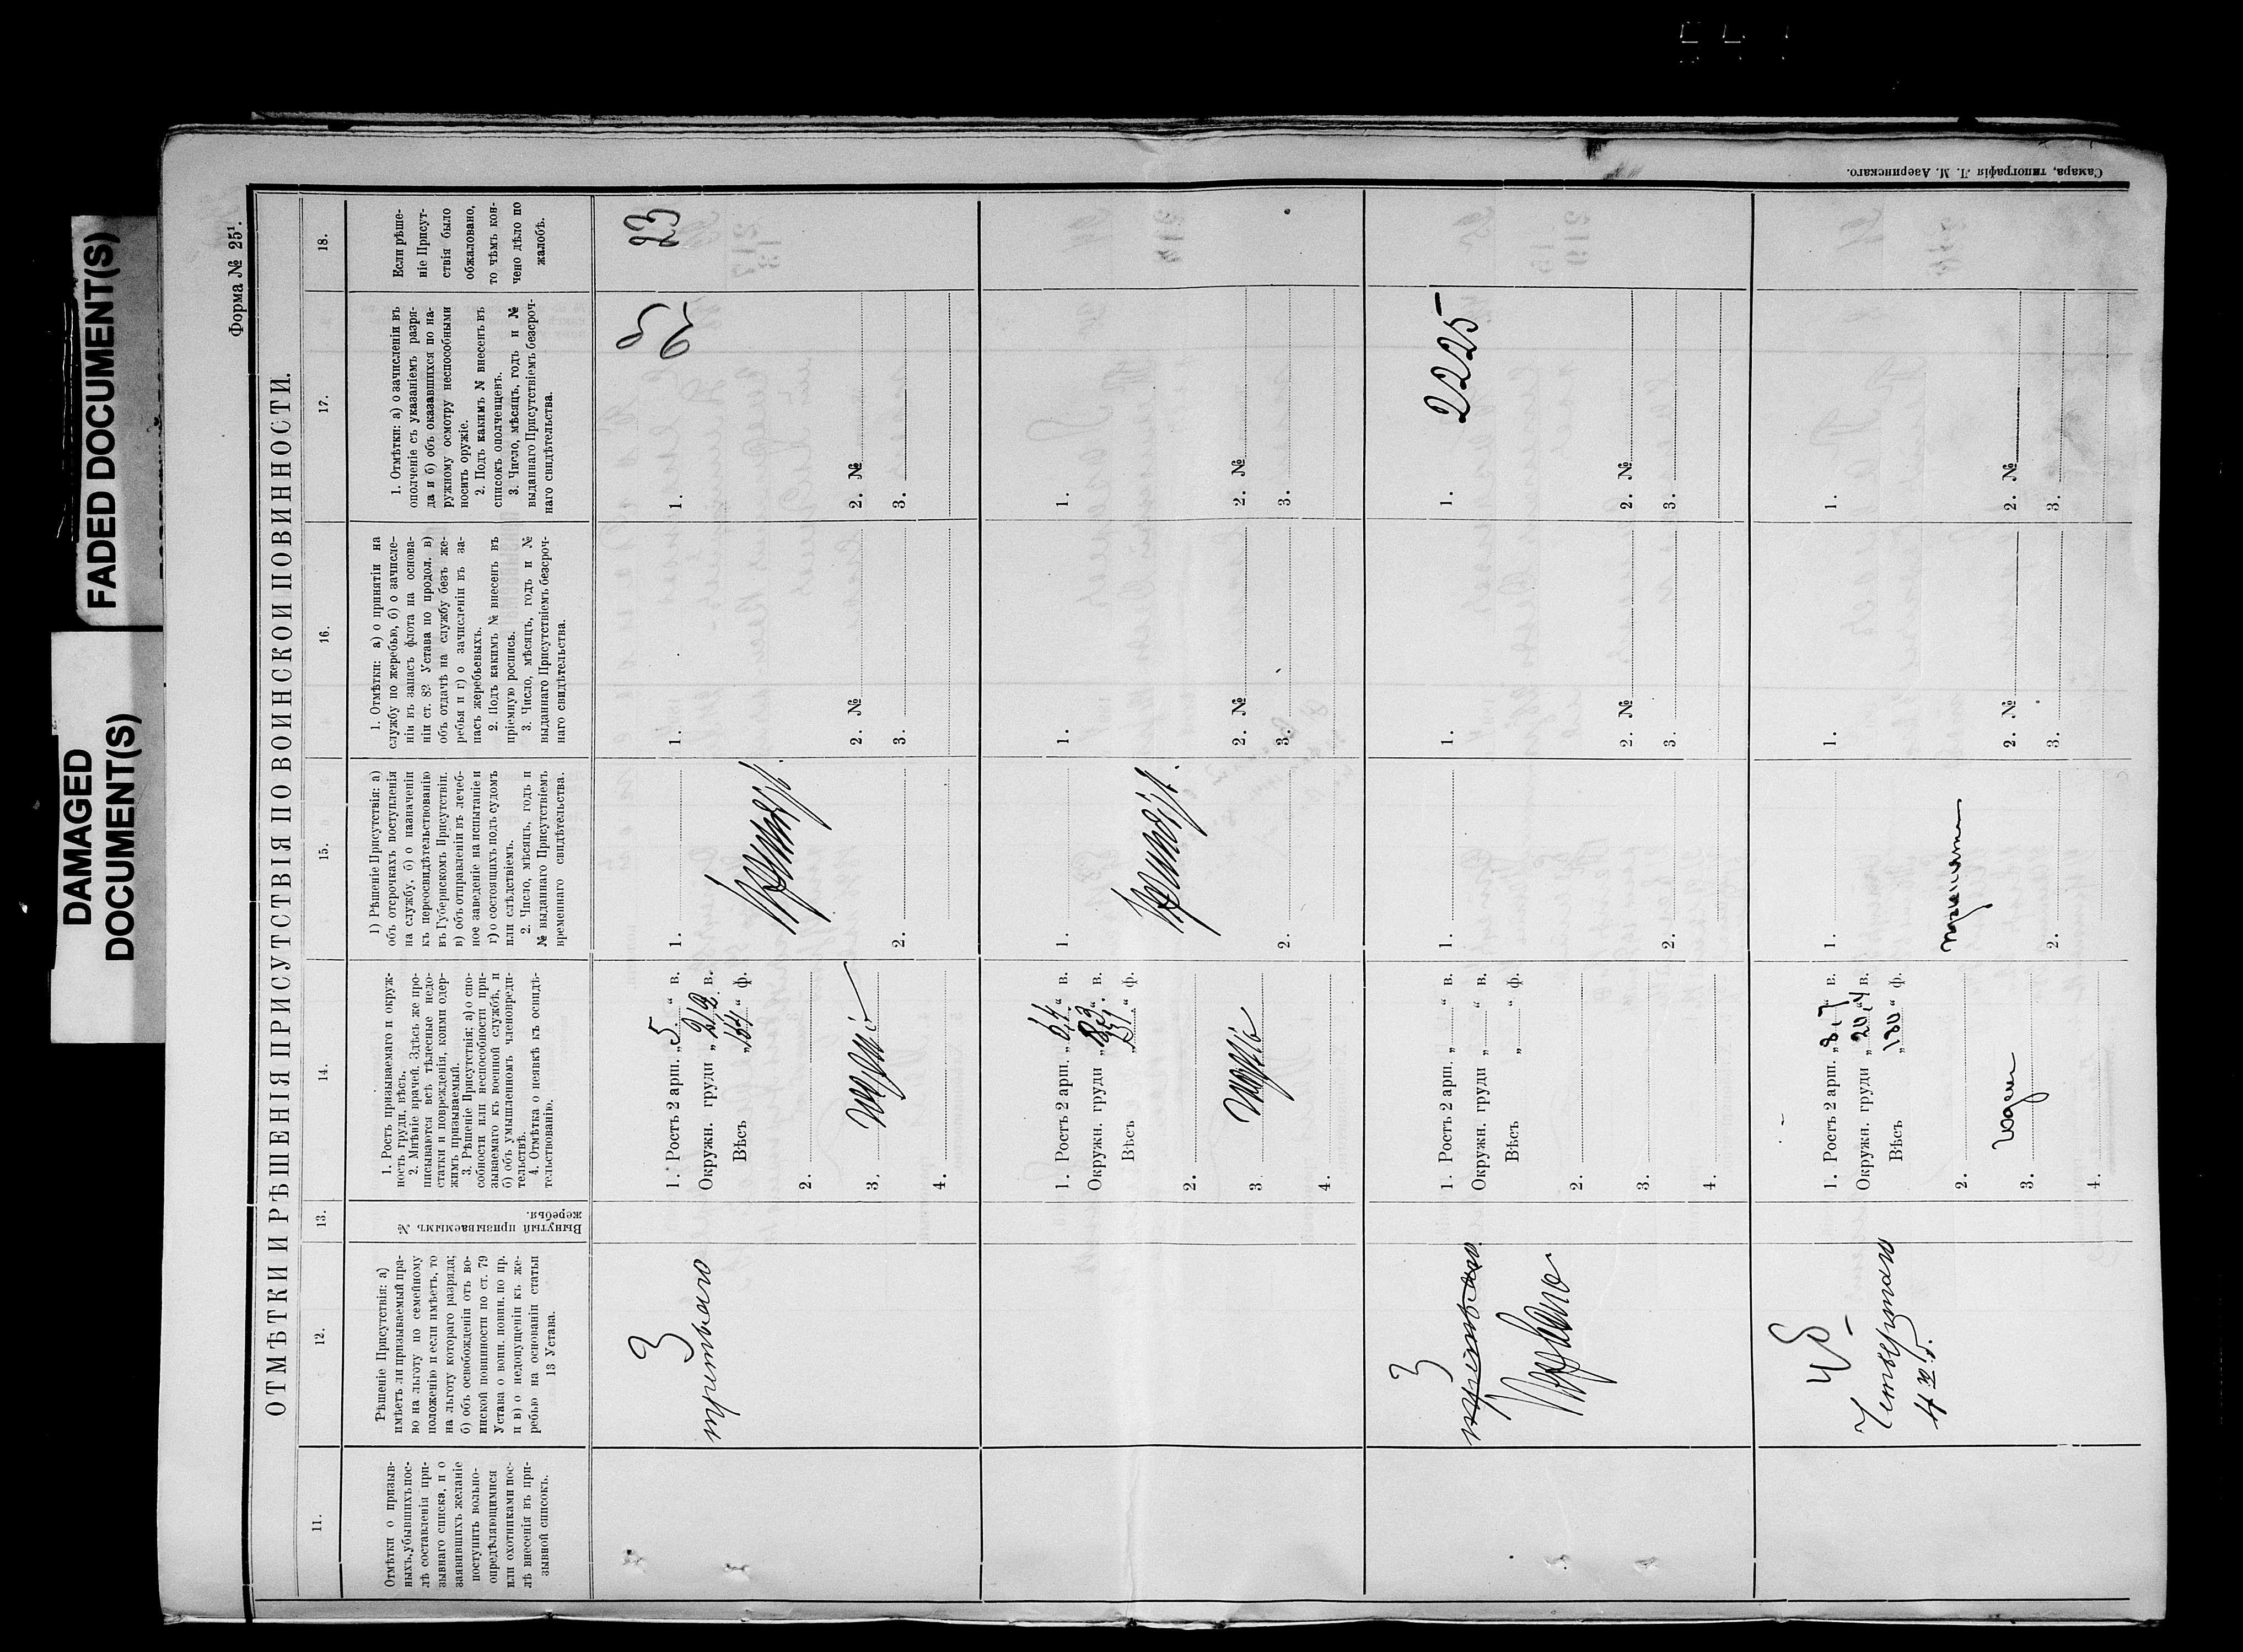 FADED DOCUMENT(S)
DAMAGED
DOCUMENT(S)
Форма № 25¹.
ОТМѢТКИ И РѢШЕНІЯ ПРИСУТСТВІЯ ПО ВОИНСКОЙ ПОВИННОСТИ.
11.
12.
13.
14.
15.
16.
17.
18.
Отмѣтки о призыв-
ныхъ, убывшихъ пос-
лѣ составленія при-
зывнаго списка, и о
заявившихъ желаніе
поступить вольно-
опредѣляющимися
или охотниками пос-
лѣ внесенія въ при-
зывной списокъ.
Рѣшеніе Присутствія: а)
имѣетъ ли призываемый пра-
во на льготу по семейному
положенію и если имѣетъ, то
на льготу котораго разряда;
б) объ освобожденіи отъ во-
инской повинности по ст. 79
Устава о воин. повин. по пр.
и в) о недопущеніи къ же-
ребью на основаніи статьи
13 Устава.
Вынутый призываемымъ №
жеребья.
1. Ростъ призываемаго и окруж-
ность груди, вѣсъ.
2. Мнѣніе врачей. Здѣсь же про-
писываются всѣ тѣлесные недо-
статки и поврежденія, коими одер-
жимъ призываемый.
3. Рѣшеніе Присутствія; а) о спо-
собности или неспособности при-
зываемаго къ военной службѣ, и
б) объ умышленномъ членовреди-
тельствѣ.
4. Отмѣтка о неявкѣ къ освидѣ-
тельствованію.
1) Рѣшеніе Присутствія: а)
объ отсрочкахъ поступленія
на службу, б) о назначеніи
къ переосвидѣтельствованію
въ Губернскомъ Присутствіи.
в) объ отправленіи въ лечеб-
ное заведеніе на испытаніе и
г) о состоящихъ подъ судомъ
или слѣдствіемъ.
2. Число, мѣсяцъ, годъ и
№ выданнаго Присутствіемъ
временнаго свидѣтельства.
1. Отмѣтки: а) о принятіи на
службу по жеребью, б) о зачисле-
ніи въ запасъ флота на основа-
ніи ст. 82 Устава по продол. в)
объ отдачѣ на службу безъ же-
ребья и г) о зачисленіи въ за-
пасъ жеребьевыхъ.
2. Подъ какимъ № внесенъ въ
пріемную роспись.
3. Число, мѣсяцъ, годъ и №
выданнаго Присутствіемъ безсроч-
наго свидѣтельства.
1. Отмѣтки: а) о зачисленіи въ
ополченіе съ указаніемъ разря-
да и б) объ оказавшихся по на-
ружному осмотру неспособными
носить оружіе.
2. Подъ какимъ № внесенъ въ
списокъ ополченцевъ.
3. Число, мѣсяцъ, годъ и №
выданнаго Присутствіемъ безсроч-
наго свидѣтельства.
Если рѣше-
ніе Присут-
ствія было
обжаловано,
то чѣмъ кон-
чено дѣло по
жалобѣ.
3
третьяго
1. Ростъ 2 арш. „5“ в.
Окружн. груди „ “ в.
Вѣсъ „ “ ф.
2.
3.
4.
1.
2.
1.
2. №
3.
1.
2. №
3.
23
1. Ростъ 2 арш. „ “ в.
Окружн. груди „ “ в.
Вѣсъ „ “ ф.
2.
3.
4.
1.
2.
1.
2. №
3.
1.
2. №
3.
3
Перваго
1. Ростъ 2 арш. „ “ в.
Окружн. груди „ “ в.
Вѣсъ „ “ ф.
2.
3.
4.
1.
2.
1.
2. №
3.
1.
2. №
3.
2225
Четвертаго
1. Ростъ 2 арш. „8,7“ в.
Окружн. груди „20,4“ в.
Вѣсъ „180“ ф.
2.
3. Годенъ
4.
1.
2.
1.
2. №
3.
1.
2. №
3.
Самара, типографія Л. М. Азеринскаго.